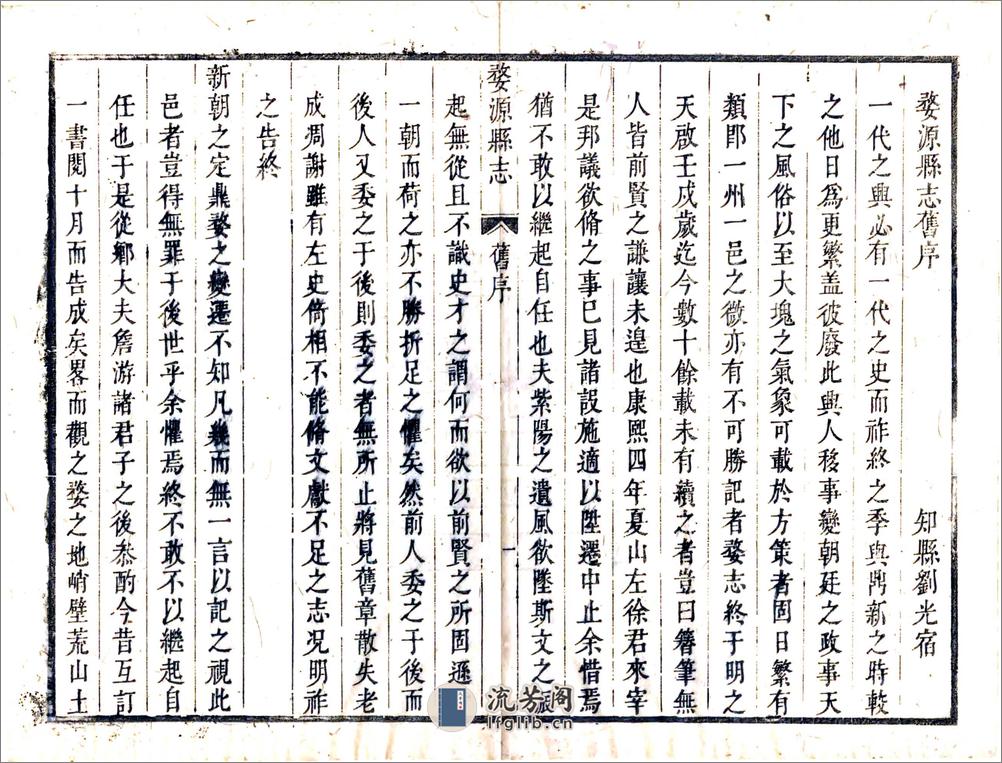 婺源縣志舊序
知縣劉光宿
一代之興必有一代之史而祚終之季與鼎新之時較
之他日爲更繁盖彼廢此興人移事變朝廷之政事天
下之風俗以至大塊之氣象可載於方策者固日繁有
類卽一州一邑之微亦有不可勝記者婺志終于明之
天啟壬戌歲迄今數十餘載未有續之者豈曰簪筆無
人皆前賢之謙讓未遑也康熙四年夏山左徐君來宰
是邦議欲脩之事已見諸設施適以陞遷中止余惜焉
猶不敢以繼起自任也夫紫陽之遺風欲墜斯文之
婺源縣志
舊序
一
起無從且不識史才之謂何而欲以前賢之所固遜
一朝而荷之亦不勝折足之懼矣然前人委之于後而
後人又委之于後則委之者無所止將見舊章散失老
成凋謝雖有左史倚相不能脩文獻不足之志况明祚
之告終
新朝之定鼎婺之變遷不知凡幾而無一言以記之視此
邑者豈得無罪于後世乎余懼焉終不敢不以繼起自
任也于是從鄉大夫詹游諸君子之後叅酌今昔互訂
一書閱十月而告成矣畧而觀之婺之地峭壁荒山土
流芳閣
lfglib.com